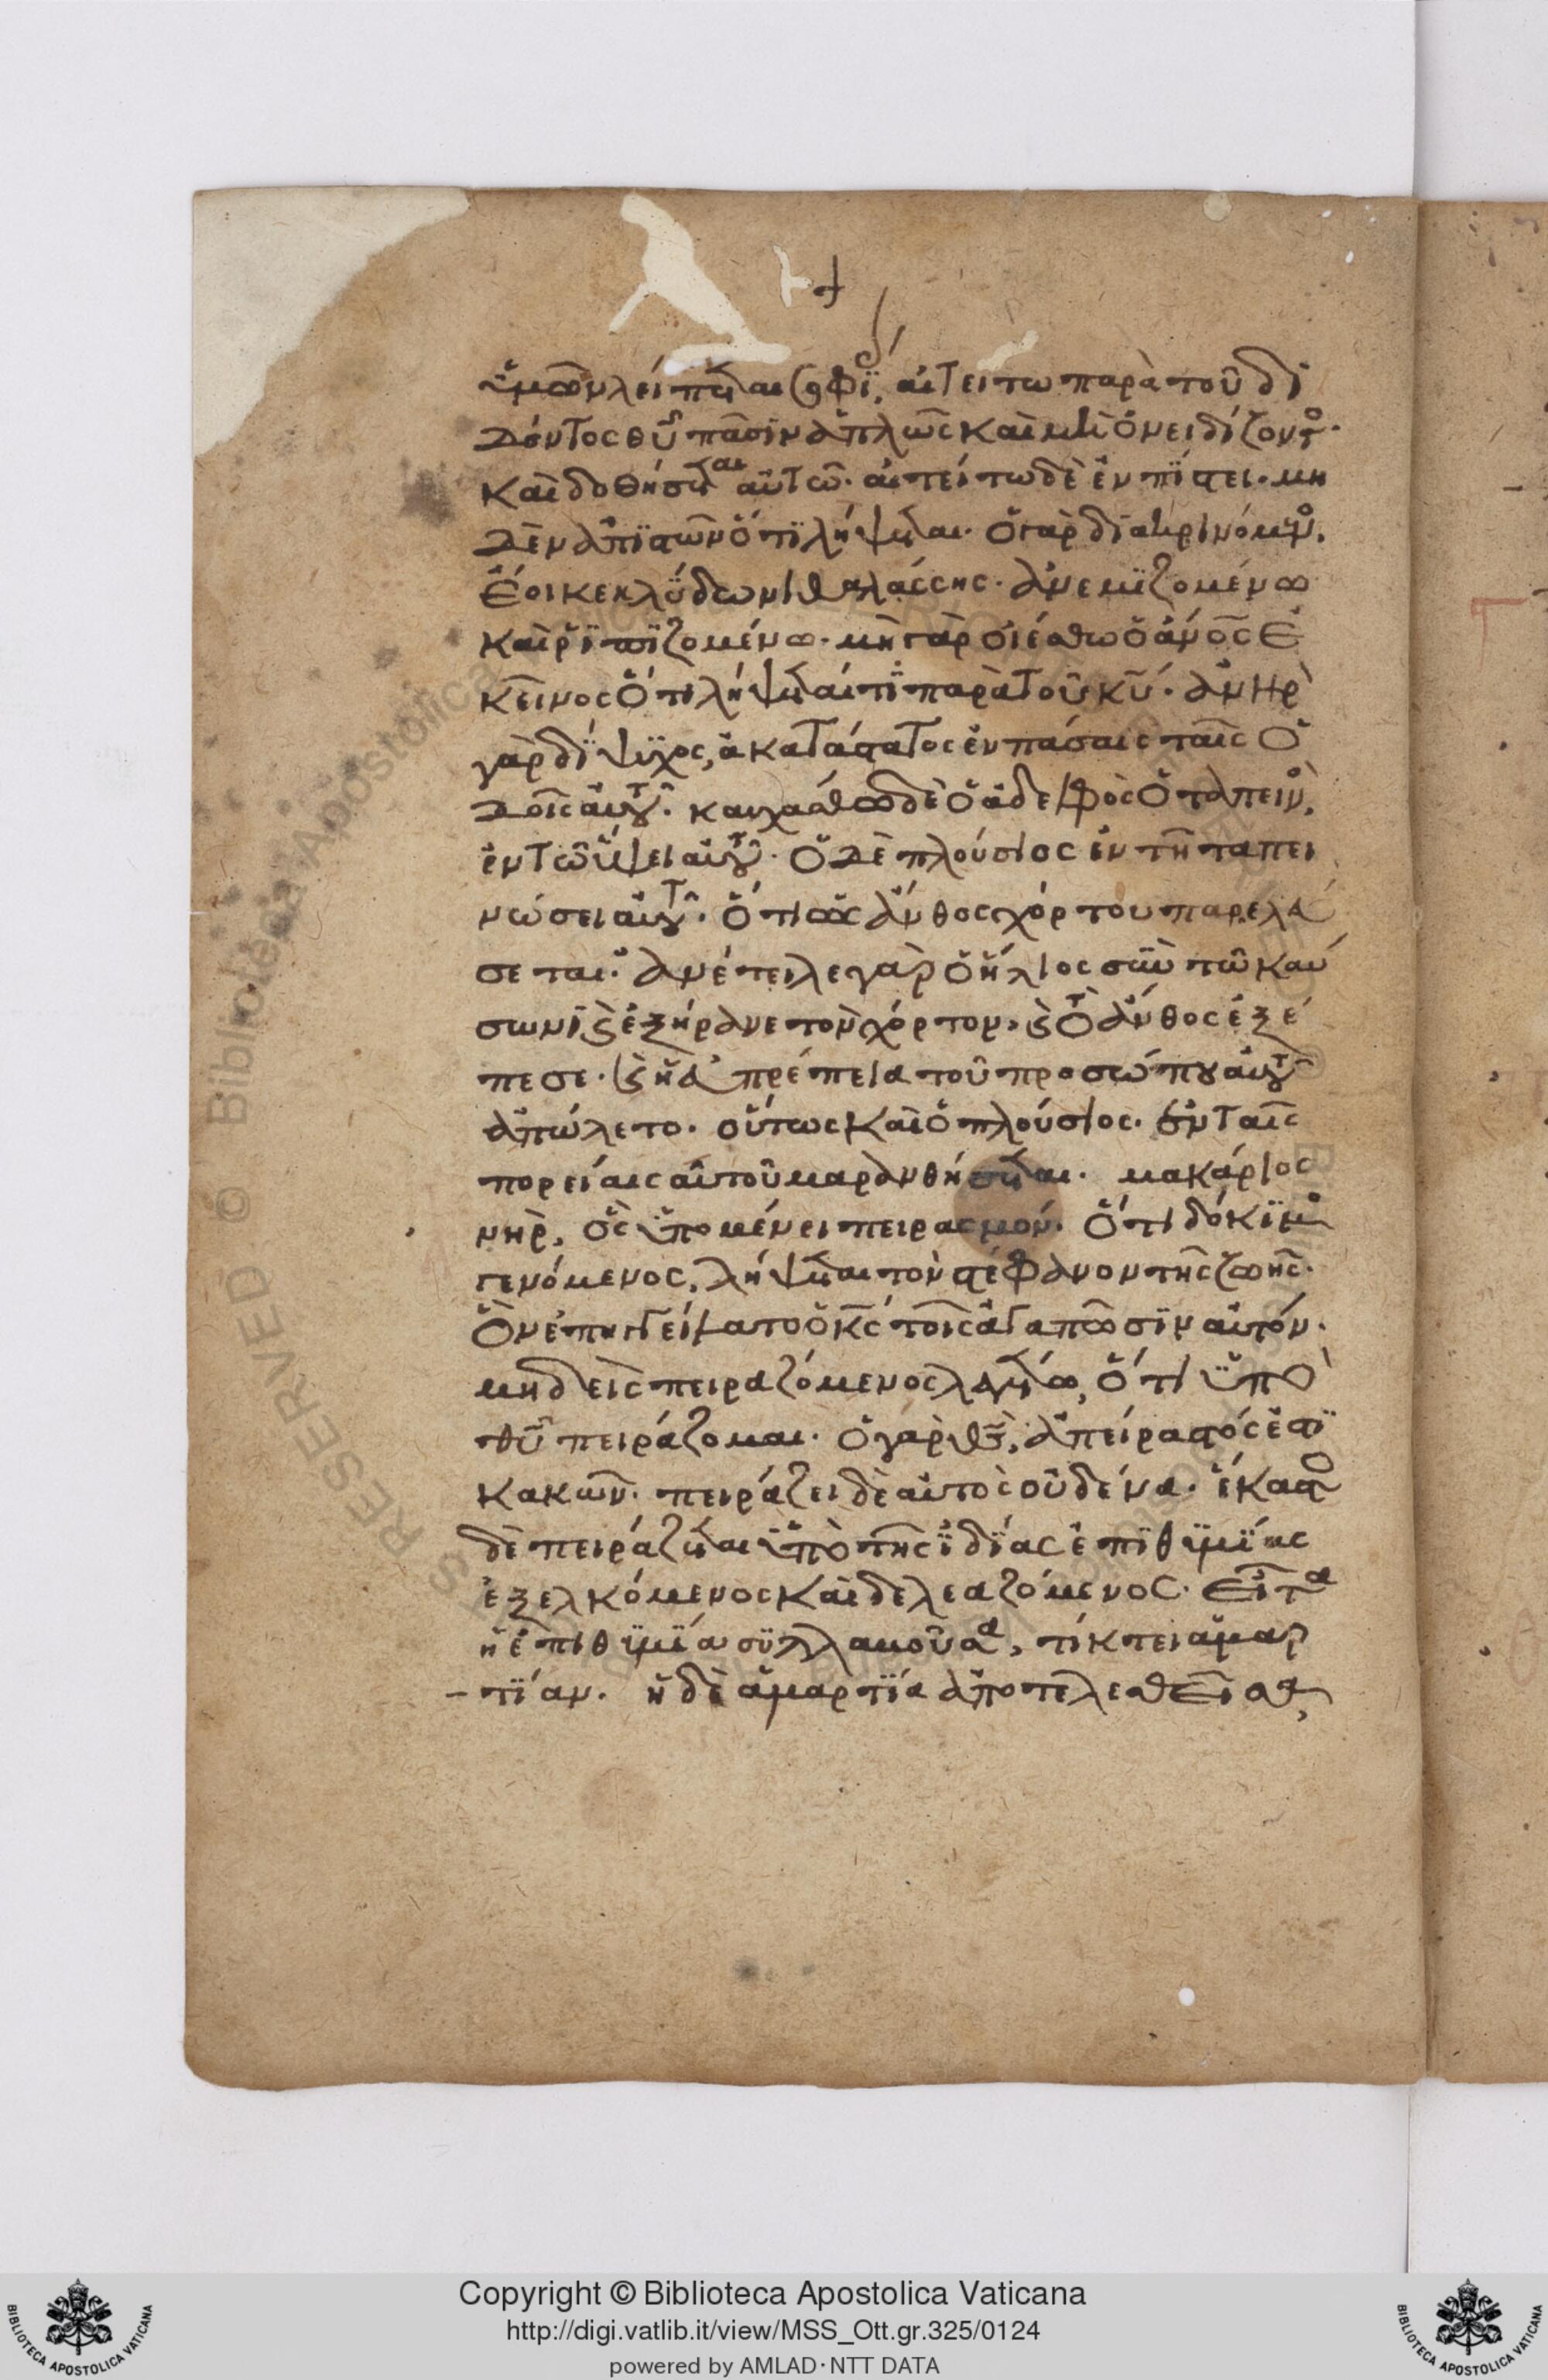 ὑμῶν λείπεται σοφί, αἰτείτω παρὰ τοῦ δι
δόντος θυ πᾶσιν ἁπλῶς καὶ μὴ ὀνειδίζοντο.
καὶ δοθήσεται αὐτῶ. αἰτείτω δὲ ἐν πίστει. μη
δὲν ἀπιστῶν ὅτι λήψεται. ὁ γὰρ διακρινόμενο,
ἔοικε κλύδωνι θαλάσσης. ἀνεμιζομένω
καὶ ῥιπιζομένω. μὴ γὰρ οἰέσθω ὁ ἀνος ἐ
κεῖνος ὅτι λήψεται τι παρὰ τοῦ κυ. ἀνὴρ
γὰρ δίψυχος, ἀκατάστατος ἐν πάσαις ταῖς ὁ
δοῖς αὐτοῦ. καυχάσθω δὲ ὁ ἀδελφὸς ὁ ταπεινὸ,
ἐν τῶ ὕψει αὐτοῦ. ὁ δὲ πλούσιος ἐν τῆ ταπει
νώσει αὐτοῦ. ὅτι ὡς ἄνθος χόρτου παρελεύ
σεται. ἀνέτειλε γὰρ ὁ ἥλιος σὺν τῶ καύ
σωνι ϗ ἐξήρανε τὸν χόρτον. ϗ τὸ ἄνθος ἐξέ
πεσε. ϗ ἡ εὐπρέπεια τοῦ προσώπου αὐτοῦ
ἀπώλετο. οὕτως καὶ ὁ πλούσιος. ἐν ταῖς
πορείαις αὐτοῦ μαρανθήσεται. μακάριος
νηρ, ὃς ὑπομένει πειρασμόν. ὅτι δόκιμο
γενόμενος, λήψεται τὸν στέφανον τῆς ζωῆς.
ὃν ἐπηγγείλατο ὁ κς τοῖς ἀγαπῶσιν αὐτόν.
μηδεὶς πειραζόμενος λεγέτω, ὅτι ὑπὸ
θυ πειράζομαι. ὁ γὰρ θς, ἀπείραστός ἐστι
κακῶν. πειράζει δὲ αὐτὸς οὐδένα. ἕκαστο
δὲ πειράζεται ὑπὸ τῆς ἰδίας ἐπιθυμίας
ἐξελκόμενος καὶ δελεαζόμενος. εἶτα
ἡ ἐπιθυμία συλλαβοῦσα, τίκτει ἁμαρ
τίαν. ἡ δὲ ἁμαρτία ἀποτελεσθεῖσα,
RESERVED © Biblioteca Apostolica
Copyright © Biblioteca Apostolica Vaticana
http://digi.vatlib.it/view/MSS_Ott.gr.325/0124
powered by AMLAD·NTT DATA
BIBLIOTECA APOSTOLICA VATICANA
BIBLIOTECA APOSTOLICA VATICANA